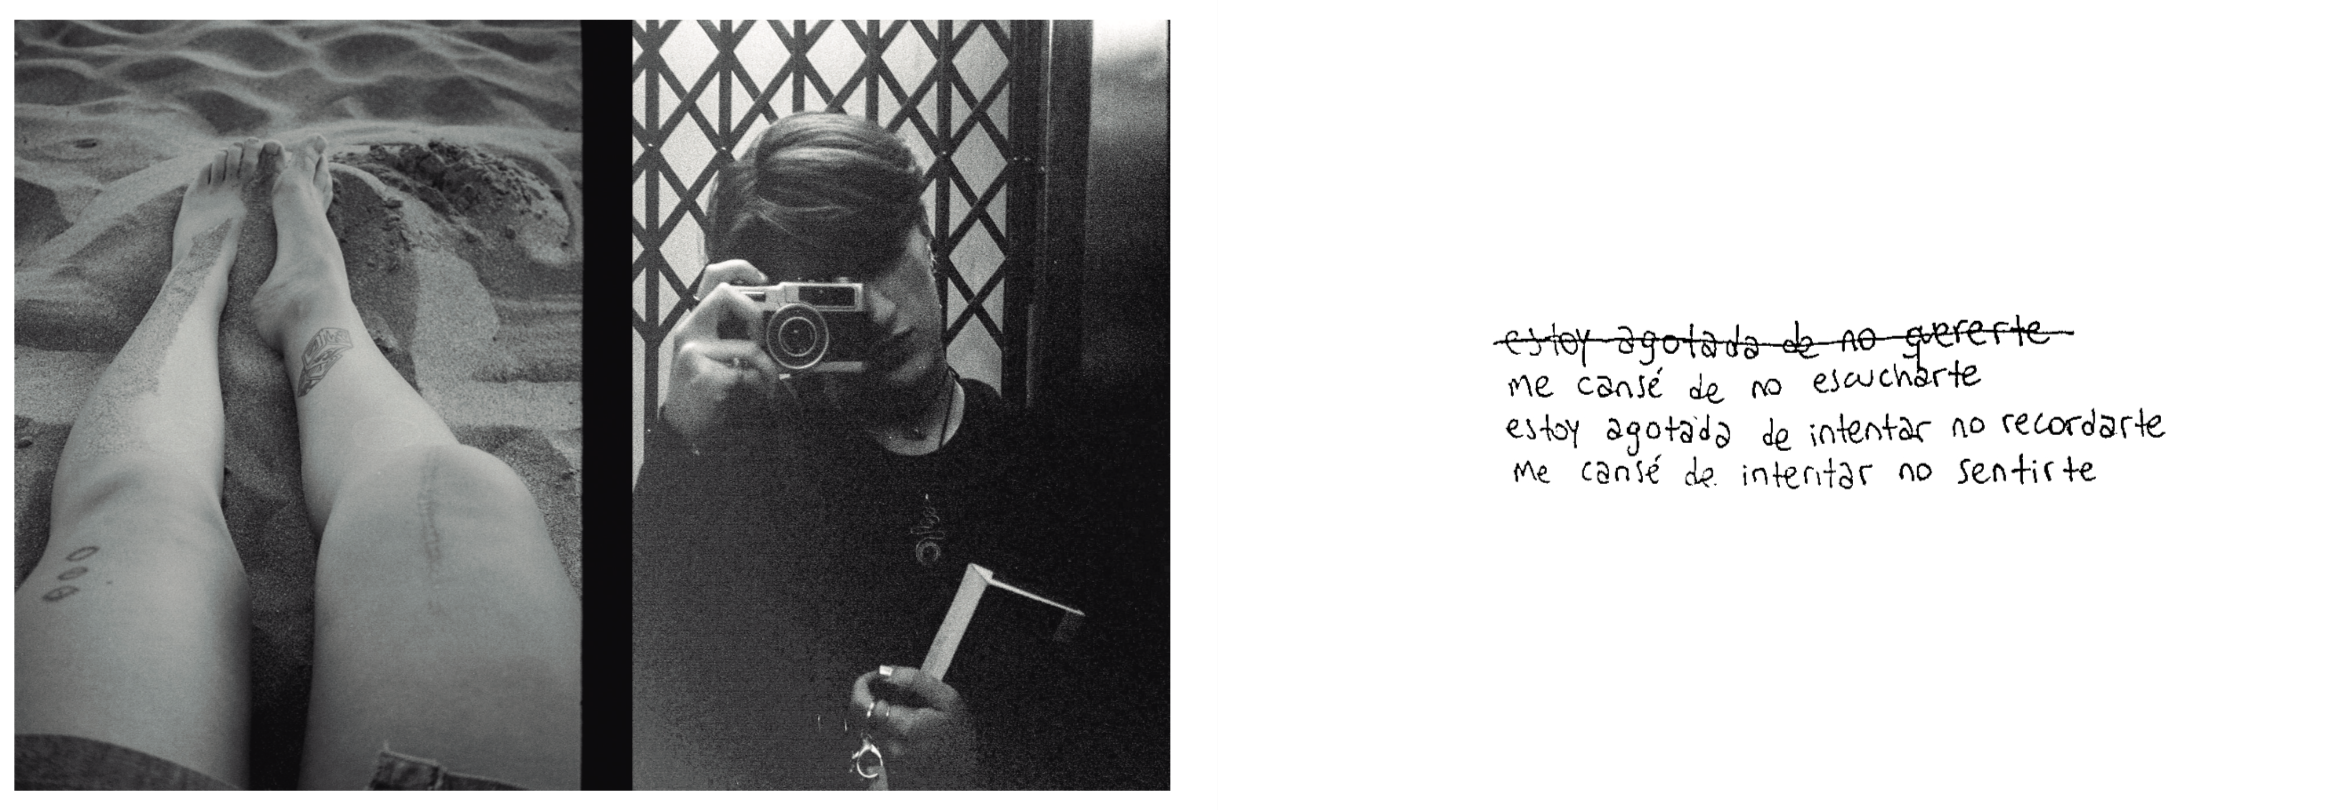 estoy agotada de no quererte
me cansé de no escucharte
estoy agotada de intentar no recordarte
me cansé de intentar no sentirte